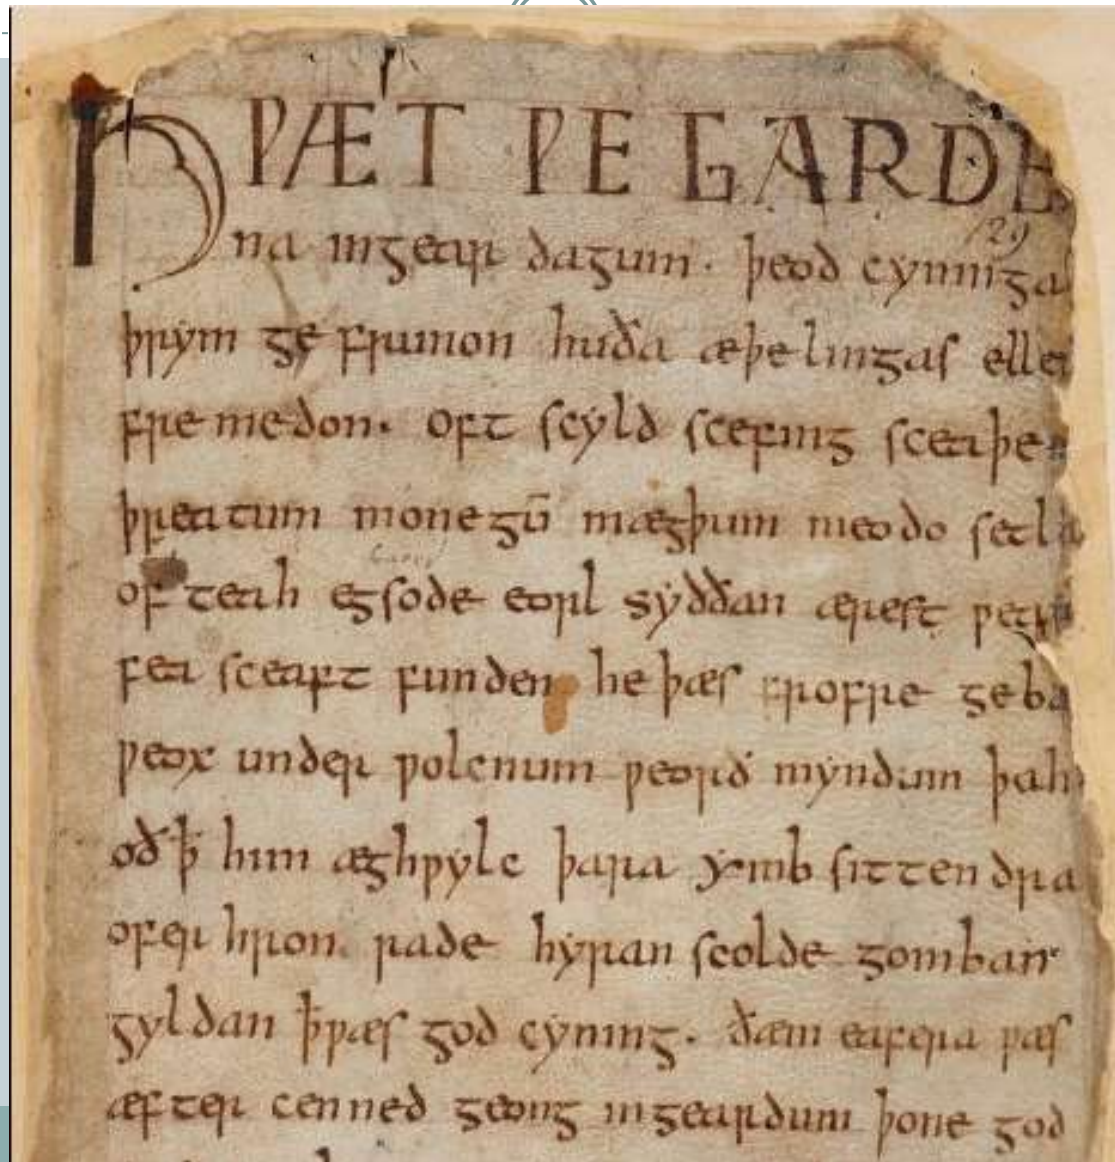 HǷÆT ǷE GARDE
129
na ingear dagum. þeod cyninga
þrym ge frunon huða æþelingas elle
fremedon. oft scyld scefing sceaþe
þreatum monegū mægþum meodo setla
of teah egsode eorl syððan ærest ƿear
fea sceaft funden he þæs frofre geba
ƿeox under ƿolcnum ƿeorð myndum þah
oð ꝥ him æghƿylc þara ymb sittendra
ofer hron rade hyran scolde gomban
gyldan ꝥ ƿæs god cyning. ðæm eafera ƿæs
æfter cenned geong ingeardum þone god